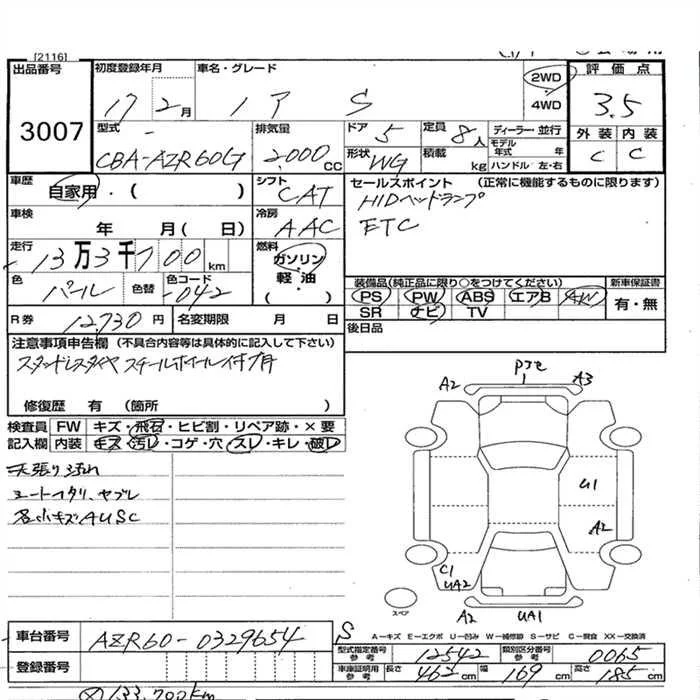 [2116]
出品番号 初度登録年月 車名・グレード 2WD 評価点
3007 17 2月 S 4WD 3.5
型式 排気量 ドア 定員 ディーラー・並行 外装 内装
CBA-AZR60G 2000cc 5 8人 モデル年式 年 C C
形状 WG 積載 kg ハンドル 左・右
車歴 自家用・( ) シフト CAT セールスポイント (正常に機能するものに限ります)
HIDヘッドランプ
車検 年 月(日) 冷房 AAC ETC
走行 13万3千700km 燃料 ガソリン
軽油
( )
装備品(純正品に限り○をつけてください) 新車保証書
色 パール 色替 色コード 042 PS PW ABS エアB AW 有・無
SR ナビ TV
R券 12,730円 名変期限 月 日 後日品
注意事項申告欄 (不具合内容等は具体的に記入して下さい)
スタッドレスタイヤ スチールホイール付
修復歴 有 (箇所 )
検査員 FW キズ・飛石・ヒビ割・リペア跡・×要
記入欄 内装 キズ・汚レ・コゲ・穴・スレ・キレ・破レ
天張り汚れ
シートヘタリ、ヤブレ
各小キズAUSC
A2 A3
U1
A2
C1
UA2
A2 UA1
スペア
A-キズ E-エクボ U-凹み W-補修跡 S-サビ C-腐食 XX-交換済
車台番号 AZR60-0329654 S
型式指定番号 参考 12542 類別区分番号 参考 0065
登録番号 車庫証明用 参考 長さ 462cm 幅 169cm 高さ 185cm
133,700km